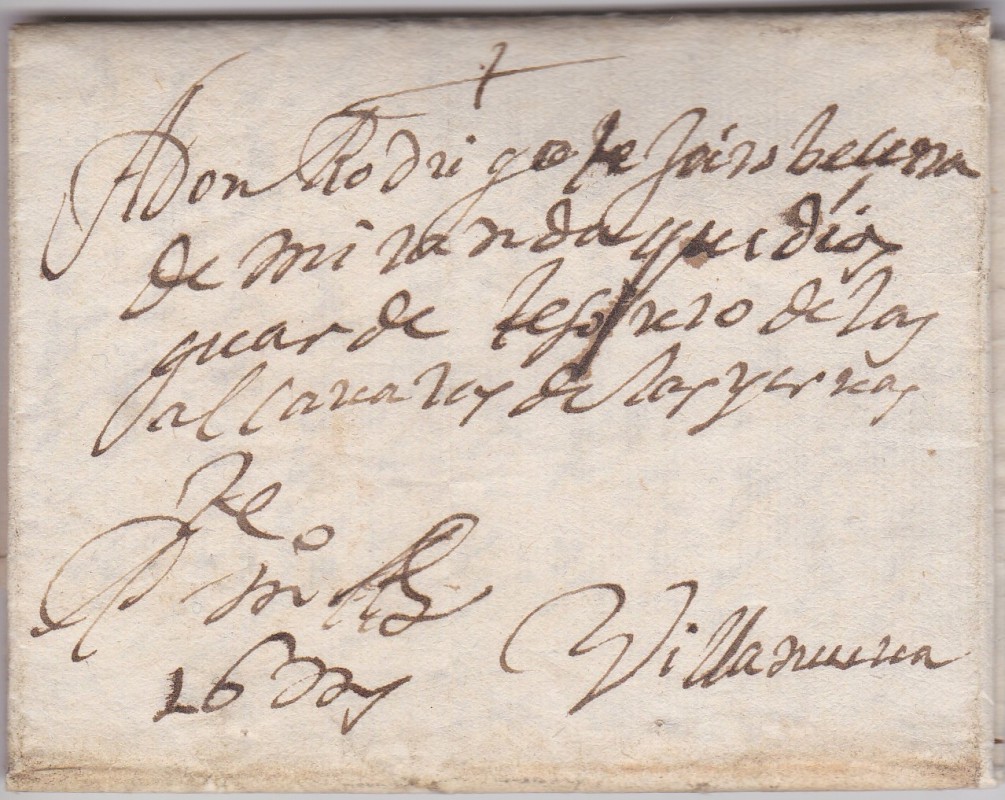 +
A don Rodrigo de Jain becerra
de miranda que dios
guarde tesorero de las
alcaualas de las yeruas
16 mrs
Villanueua